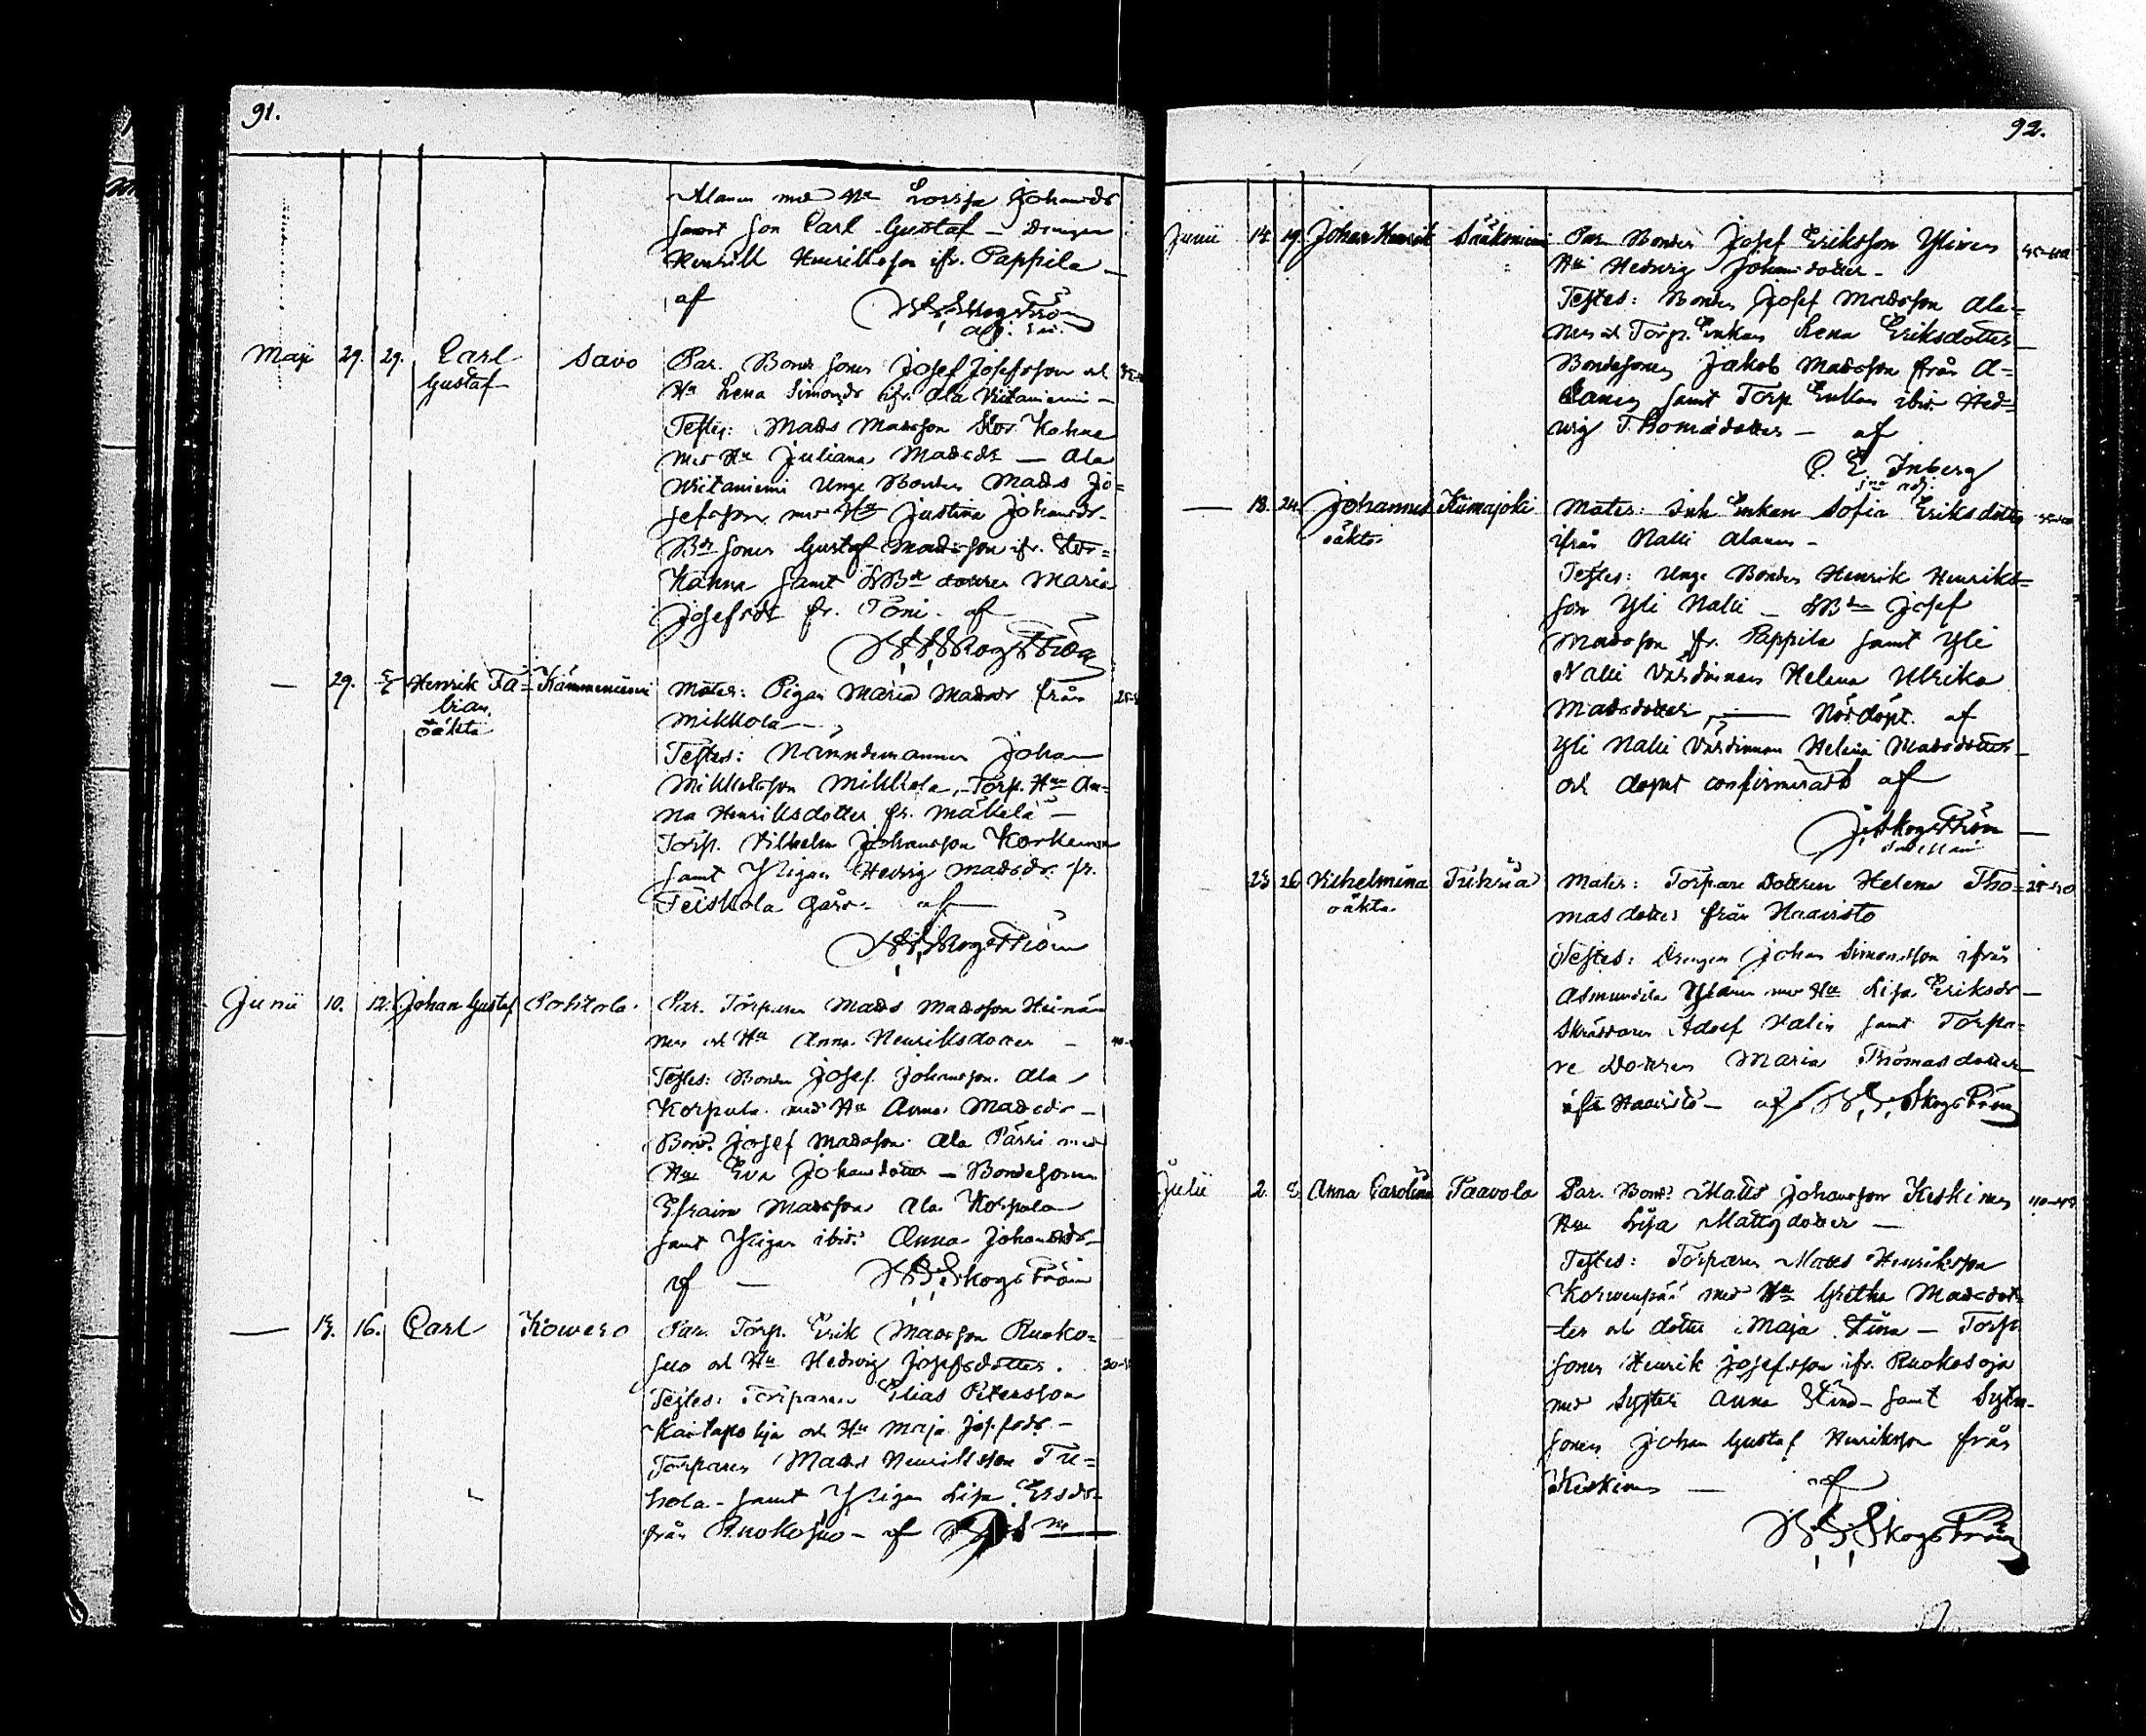 91.
Alanen med Hu Lovisa Johansdr
samt son Carl Gustaf – Drengen
Henrik Henriksson ifr. Pappila –
af Skogström
Maji 29. 29. Carl Gustaf Savo
Par. Bonde sonen Josef Josefsson och
Hu Lena Simonsdr ifr. Ala Kiitaniemi –
Testes: Mads Madsson Stor Kahna
med Hu Juliana Madsdr – Ala
Kiitaniemi Unge Bonden Mads Jo=
sefsson med Hu Justina Johansdr.
Bde sonen Gustaf Madsson ifr. Stor=
Kahna samt dottren Maria
Josefsdr fr. Toni. af
Skogström
— 29. Henrik Fa= Kämmeniemi
bian
oäkta
Mater: Pigan Maria Madsdr från
Mikkola –
Testes: Nämndemannen Johan
Mikkelsson Mikkola, Torp. Hun An=
na Henriksdotter fr. Mäkelä –
Torp. Vilhelm Johansson Korkeanen
samt Pigan Hedvig Madsdr. fr.
Teiskola gård. af
Skogström
Junii 10. 12. Johan Gustaf Pohtola.
Par. Torparen Mads Madsson Heinä=
nen och Hu Anna Henriksdotter –
Testes: Bonden Josef Johansson Ala
Korpula med Hu Anna Madsdr –
Bond. Josef Madsson Ala Pärri med
Hu Eva Johansdotter – Bondesonen
Efraim Madsson Ala Korpula
samt Pigan ibid: Anna Johansdr –
af — Skogström
— 16. Carl Kowero
Par. Torp. Erik Madsson Ruoko=
suo och Hu Hedvig Josefsdotter.
Testes: Torparen Elias Petersson
och Hu Maja Josefsdr. –
Torparen Mads Henriksson
samt Pigan Lisa Ersdr
från Ruokosuo – af
92.
Junii 14. 19. Johan Henrik Sääksniemi
Par. Bonden Josef Eriksson Ylinen
Hu Hedvig Johansdotter –
Testes: Bonden Josef Madsson Ala=
nen och Torp. Enkan Lena Eriksdotter –
Bondesonen Jakob Madsson från A=
lanen samt Torp Enkan ibid. Hed=
vig Thomædotter – af
C. E. Inberg
— 18. 24. Johannes Kiimajoki
oäkta
Mater: Inh Enkan Sofia Eriksdotter
ifrån Nalli Alanen –
Testes: Unge Bonden Henrik Henriks=
son Yli Nalli – Josef
Madsson fr. Pappila samt Yli
Nalli Värdinnan Helena Ulrika
Madsdotter, — Nöddöpt af
Yli Nalli Värdinnan Helena Madsdotter –
och dopet confirmeradt af
Skogström
23 26 Vilhelmina
oäkta
Mater: Torpare Dottren Helena Tho=
masdotter från Haavisto
Testes: Drengen Johan Simonsson ifrån
Asmundila Ylänen med Hu Lisa Eriksdr –
Skräddaren Adolf Valin samt Torpa=
re Dottren Maria Thomasdotter
ifrån Haavisto – af Skogström
Julii 2. Anna Carolina Paavola
Par. Bond. Matts Johansson Keskinen
Hu Lisa Mattsdotter —
Testes: Torparen Matts Henriksson
Korvenpää med Hu Gretha Madsdot=
ter och dotter Maja Stina – Torp
sonen Henrik Josefsson ifr. Ruokosoja
med Syster Anna Stina – samt Sytn.
sonen Johan Gustaf Henriksson från
Keskinen — af
Skogström